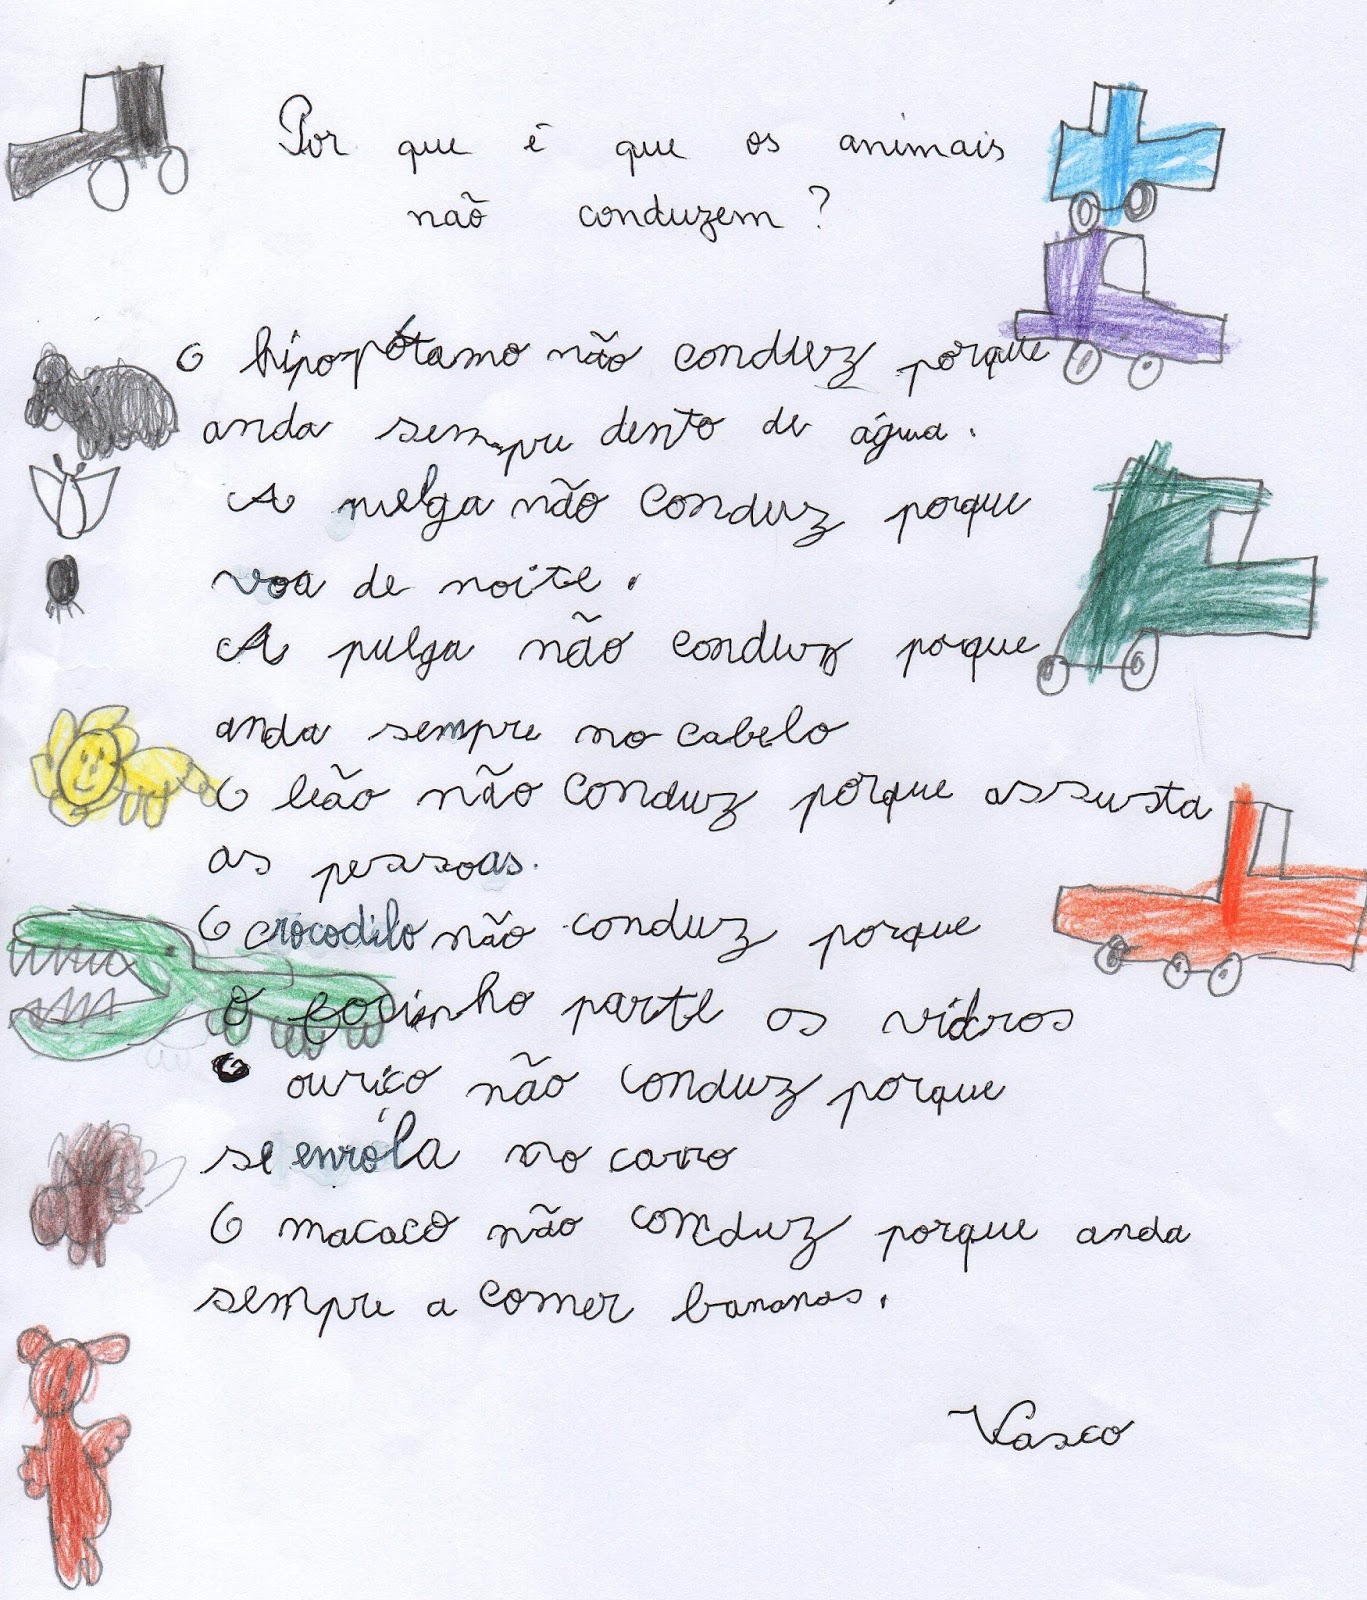 Por que é que os animais
não conduzem?
O hipopótamo não conduz porque
anda sempre dento de água.
A melga não conduz porque
voa de noite.
A pulga não conduz poque
anda sempre no cabelo
O leão não conduz porque assusta
as pessoas.
O crocodilo não conduz porque
o focinho parte os vidros
O ouriço não conduz porque
se enróla no carro
O macaco não conduz porque anda
sempre a comer bananas.
Vasco